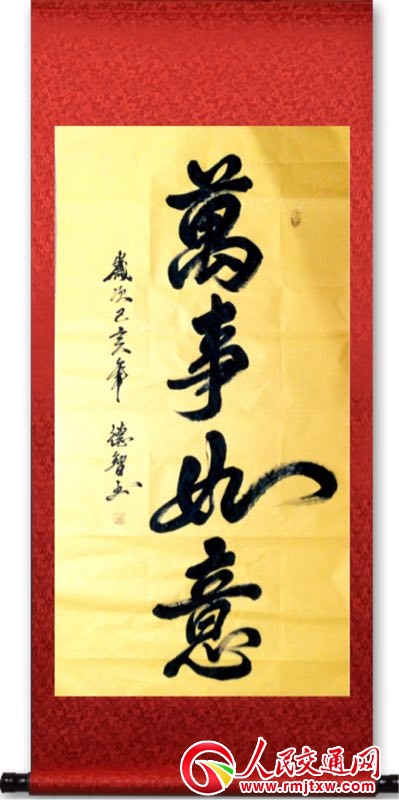 萬事如意
歲次己亥年 德智书
人民交通网
www.rmjtxw.com